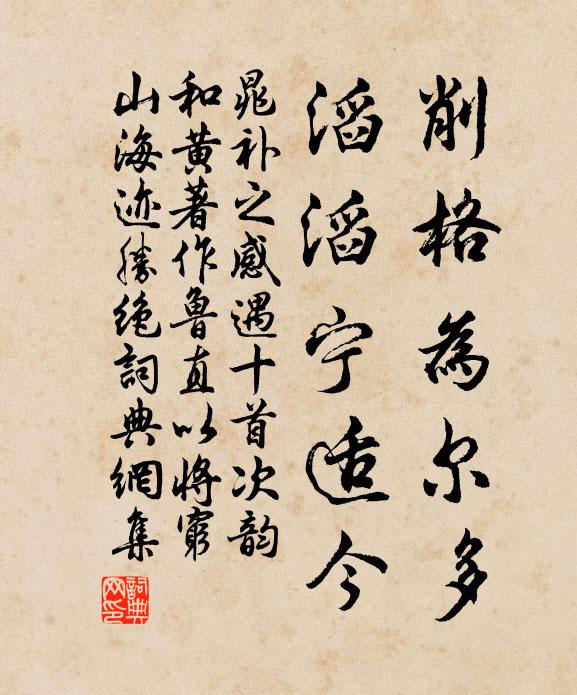 削格為尔多
滔滔宁适今
晁补之感遇十首次韵
和黄著作鲁直以将窮
山海迹勝绝詞典網集
詞典網印